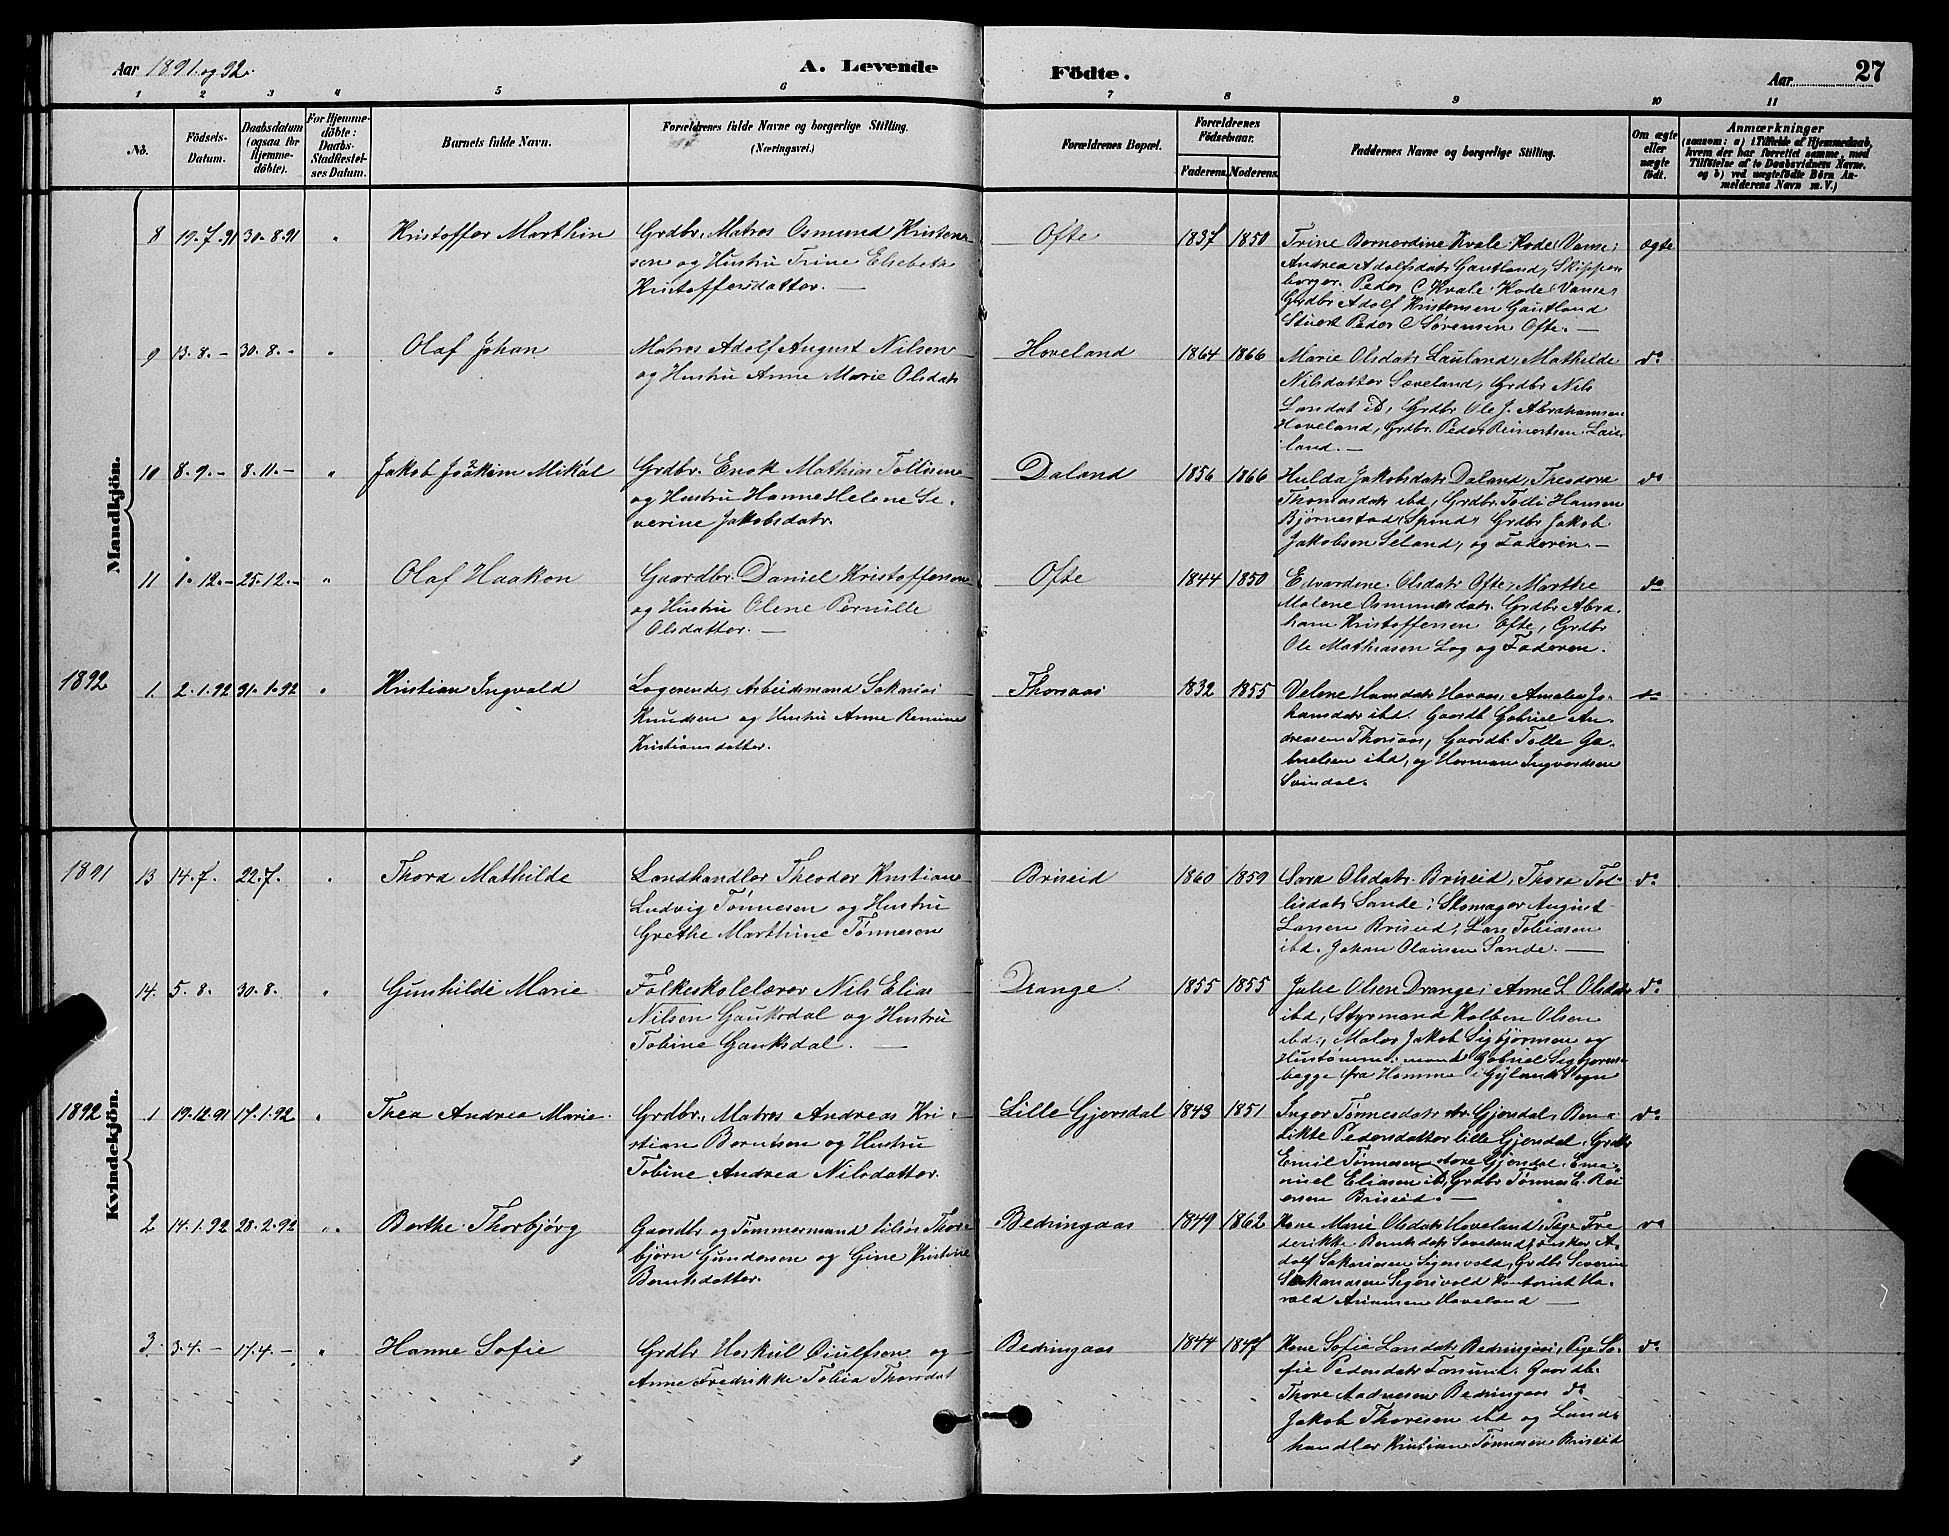 Aar 1891 og 92.
A. Levende Födte.
Aar 27
1 2 3 4 5 6 7 8 9 10 11
No.
Födsels-Datum.
Daabsdatum (ogsaa for Hjemmedöbte).
For Hjemmedöbte: Daabs-Stadfestelses Datum.
Barnets fulde Navn.
Forældrenes fulde Navne og borgerlige Stilling.
(Næringsvei.)
Forældrenes Bopæl.
Forældrenes Födselsaar.
Faderens. Moderens.
Faddernes Navne og borgerlige Stilling.
Om ægte eller uægte födt.
Anmærkninger
(saasom: a) i Tilfælde af Hjemmedaab, hvem der har forrettet samme, med Tilföielse af to Daabsvidners Navne. og b) ved uægtefödte Börn Anmelderens Navn m. V.)
Mandkjön.
8 19.7.91 30.8.91 " Kristoffer Marthin
Grdbr. Matros Osmund Kristen-
sen og Hustru Trine Elsebeth
Kristoffersdatter. —
Ofte 1837 1850
Trine Bernerdine Kvale Hode, Vanse;
Andrea Adolfsdatr Gautland, Skipper
borger Peder C Kvale Hode, Vanse,
Grdbr Adolf Kristensen Gautland
Stuert Peder C Sørensen Ofte. —
ægte
9 13.8.- 30.8.- " Olaf Johan
Matros Adolf August Nilsen
og Hustru Anne Marie Olsdatr
Hoveland 1864 1866
Marie Olsdatr Lauland, Mathilde
Nilsdatter Sæveland, Grdbr Nils
ibd, Grdbr Ole J. Abrahamsen
Hoveland, Grdbr. Peder Reinertsen Lau-
land. —
do
10 8.9.- 8.11.- " Jakob Joakim Mikal
Grdbr. Enok Mathias Tollisen
og Hustru Hanne Helene Se-
verine Jakobsdatr.
Daland 1856 1866
Hulda Jakobsdatr Daland, Theodora
Thomasdatr ibd, Grdbr. Tolli Hansen
Bjørnestad, Spind, Grdbr Jakob
Jakobsen Seland, og Faderen. —
do
11 1.12.- 25.12.- " Olaf Haakon
Gaardbr. Daniel Kristoffersen
og Hustru Olene Pernille
Olsdatter. —
Ofte 1844 1850
Edvardine Olsdatr Ofte, Marthe
Malene Osmundsdatr. Grdbr Abra-
ham Kristoffersen Ofte, Grdbr
Ole Mathiasen Log og Faderen.
do
1892
1. 2.1.92 31.1.92 " Kristian Ingvald
Logerende, Arbeidsmand Sakarias
Knudsen og Hustru Anne Remine
Kristiansdatter.
Thorsaas 1832 1855
Velene Hansdatr Haraas, Amalia Jo-
hansdatr ibd. Gaardb Gabriel An-
dreasen Thorsaas, Gaardb. Tolle Ga-
brielsen ibd, og Herman Ingvardsen
Svindal.
do
Kvindekjön.
1891
13 14.7. 22.7. " Thora Mathilde
Landhandler Theodor Kristian
Ludvig Tønnesen og Hustru
Grethe Marthine Tønnesen
Briseid 1860 1859
Sara Olsdatr Briseid, Thora Tol-
lisdatr Sande; Skomager August
Larsen Briseid, Lars Tobiasen
ibd. Johan Olausen Sande. —
do
14. 5.8. 30.8. " Gunhilde Marie
Folkeskolelærer Nils Elias
Nilsen Gauksdal og Hustru
Tobine Gauksdal. —
Drange 1855 1855
Julie Olsen Drange; Anne S. Olsdatr
ibd, Styrmand Kolben Olsen
ibd., Maler Jakob Sigbjørnsen og
Hustømmermand Gabriel Sigbjørns-
bagge fra Homme i Gyland Sogn
do
1892
1 19.12.91 17.1.92 " Thea Andrea Marie
Grdbr. Matros Andreas Kri-
stian Berntsen og Hustru
Tobine Andrea Nilsdatter.
Lille Gjersdal 1843 1851
Inger Tønnesdatr str Gjersdal, Ben-
dikte Pedersdatter lille Gjersdal, Grdbr
Emil Tønnesen store Gjersdal, Ema-
nuel Eliasen ibd, Grdbr Tønnes E. Rei-
ersen Briseid. —
do
2 14.1.92 28.2.92 " Berthe Thorbjørg
Gaardbr og Tømmermand tilsøs Thor-
bjørn Gundersen og Gine Kristine
Berntsdatter.
Bedringaas 1849 1862
Kone Marie Olsdatr Hoveland, Pige Fre-
derikke Berntsdatr Sæveland, Fisker A-
dolf Sakariasen Sigersvold, Grdbr Severin
Sakariasen Sigersvold Kontorist Ha-
rald Hoveland —
do
3. 3.4.- 17.4.- " Hanne Sofie
Grdbr Herkul Oiulfsen og
Anne Fredrikke Tobia Thorsdat
Bedringaas 1844 1847
Kone Sofie Larsdatr Bedringaas, Pige So-
fie Pedersdatr Farsund. Gaardb.
Thore Aadnesen Bedringaas do
Jakob Thoresen ibd og Land-
handler Kristian Tønnesen Briseid
do